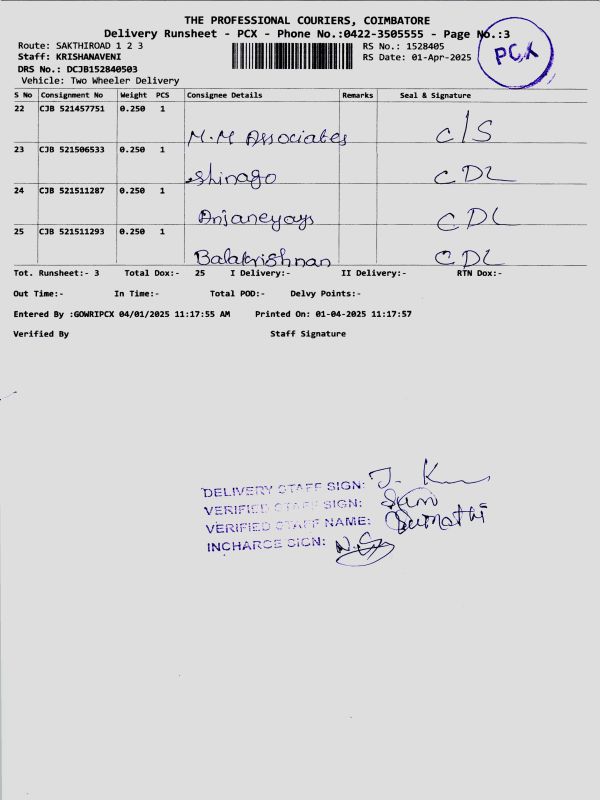 THE PROFESSIONAL COURIERS, COIMBATORE
Delivery Runsheet - PCX - Phone No.:0422-3505555 - Page No.:3
PCX
Route: SAKTHIROAD 1 2 3 RS No.: 1528405
Staff: KRISHANAVENI RS Date: 01-Apr-2025
DRS No.: DCJB152840503
Vehicle: Two Wheeler Delivery
S No Consignment No Weight PCS Consignee Details Remarks Seal & Signature
22 CJB 521457751 0.250 1 M.M Associates C/S
23 CJB 521506533 0.250 1 Shinago CDL
24 CJB 521511287 0.250 1 Anjaneyays CDL
25 CJB 521511293 0.250 1 Balakrishnan CDL
Tot. Runsheet:- 3 Total Dox:- 25 I Delivery:- II Delivery:- RTN Dox:-
Out Time:- In Time:- Total POD:- Delvy Points:-
Entered By :GOWRIPCX 04/01/2025 11:17:55 AM Printed On: 01-04-2025 11:17:57
Verified By Staff Signature
DELIVERY STAFF SIGN:
VERIFIED STAFF SIGN:
VERIFIED STAFF NAME: Sumathi
INCHARGE SIGN: